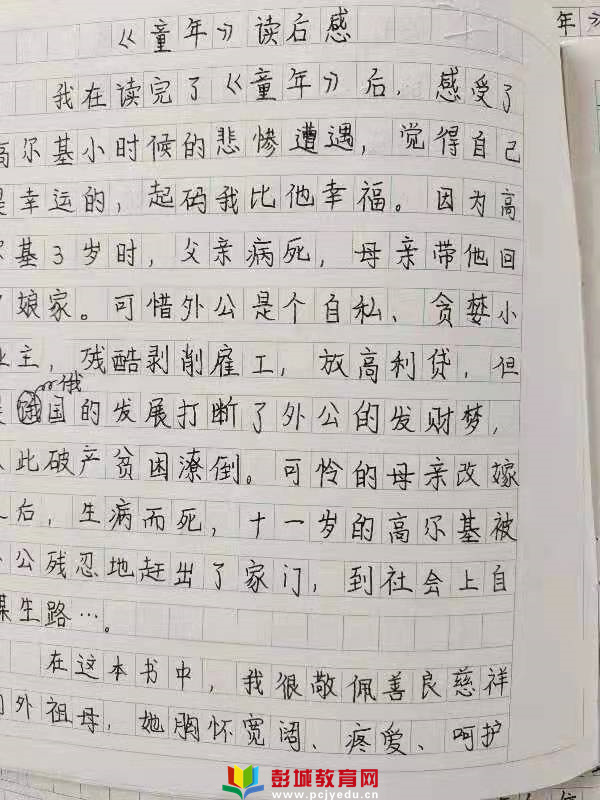 《童年》读后感
年》
我在读完了《童年》后，感受了
高尔基小时候的悲惨遭遇，觉得自己
是幸运的，起码我比他幸福。因为高
尔基3岁时，父亲病死，母亲带他回
娘家。可惜外公是个自私、贪婪小
业主，残酷剥削雇工，放高利贷，但
俄
国的发展打断了外公的发财梦，
此破产贫困潦倒。可怜的母亲改嫁
后，生病而死，十一岁的高尔基被
公残忍地赶出了家门，到社会上自
谋生路…。
在这本书中，我很敬佩善良慈祥
外祖母，她胸怀宽阔、疼爱、呵护
彭城教育网
www.pcjyedu.cn